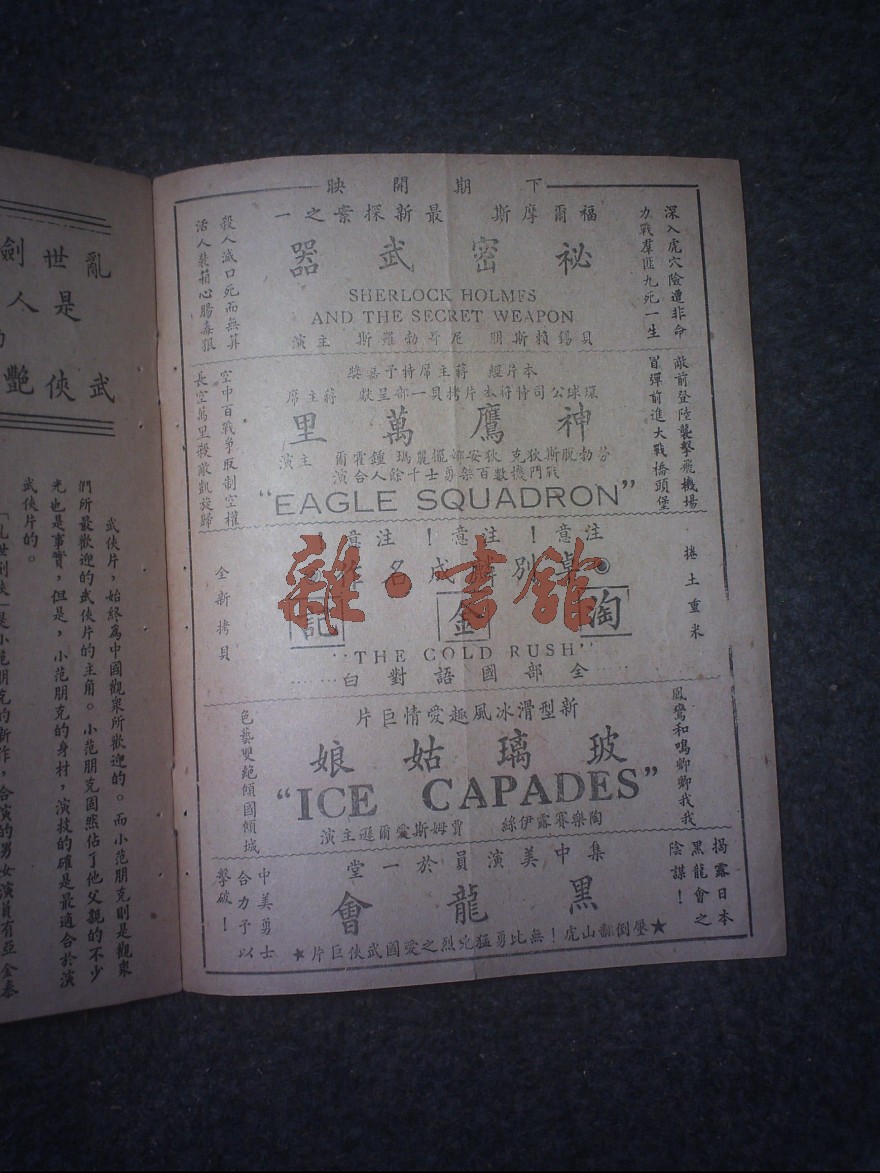 下期開映
深入虎穴險遭非命
力戰羣匪九死一生
福爾摩斯最新探案之一
祕密武器
SHERLOCK HOLMES
AND THE SECRET WEAPON
貝錫賴斯朋 尼哥勃羅斯 主演
殺人滅口死而無算
活人裝箱心腸毒狠
敵前登陸襲擊飛機場
冒彈前進大戰橋頭堡
本片經 蔣主席特予嘉獎
環球公司特將本片拷貝一部呈獻 蔣主席
神鷹萬里
芬勃脫斯狄克 狄安娜擺麗瑪 鍾霍爾 主演
戰鬥機數百架勇士千餘人合演
"EAGLE SQUADRON"
空中百戰爭取制空權
長空萬里殺敵凱旋歸
捲土重來
注意！注意！注意
卓別麟成名作
淘金記
"THE GOLD RUSH"
全部國語對白
全新拷貝
鳳鸞和鳴卿卿我我
新型滑冰風趣愛情巨片
玻璃姑娘
"ICE CAPADES"
陶樂賽露伊絲 賈姆斯愛爾遜主演
色藝雙絕傾國傾城
揭露日本
黑龍會之
陰謀！
集中美演員於一堂
黑龍會
★壓倒翻山虎！無比勇猛兇烈之愛國武俠巨片★
中美勇士
合力予以
擊破！
亂世劍
是人
武俠艷
武俠片，始終為中國觀眾所歡迎的。而小范朋克則是觀眾
們所最歡迎的武俠片的主角。小范朋克固然佔了他父親的不少
光也是事實，但是，小范朋克的身材，演技的確是最適合於演
武俠片的。
「亂世劍俠」是小范朋克的新作，合演的男女演員有亞金泰
雜·書館